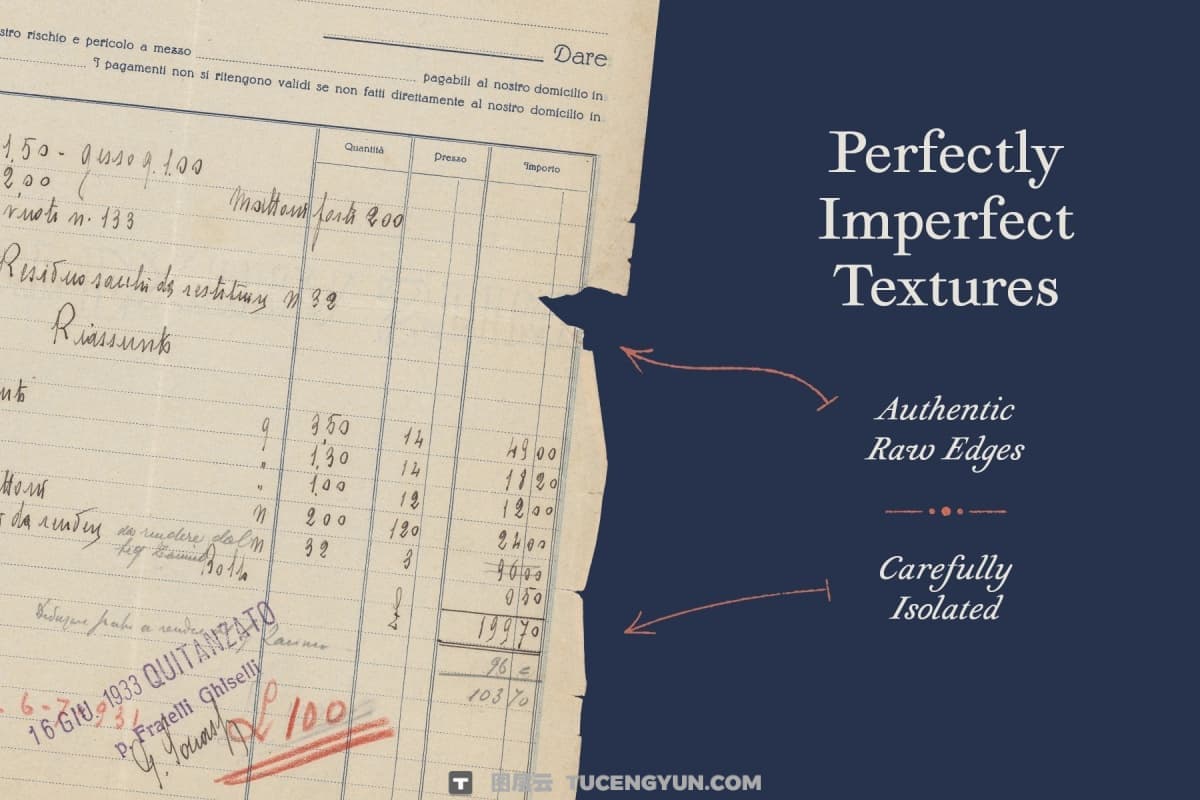 Dare
stro rischio e pericolo a mezzo
pagabili al nostro domicilio in
I pagamenti non si ritengono validi se non fatti direttamente al nostro domicilio in
Quantità Prezzo Importo
1.50 - gesso q. 1.00
2.00
vuoti n. 133
Mattoni forti 200
Residuo sacchi da restituire n 32
Riassunto
q 3,50 14 49 00
" 1,30 14 18 20
" 1,00 12 12 00
n 200 120 24 00
da rendere dal n 32 3 96 00
Bollo 0 50
199 70
96
103 70
QUITANZATO
16 GIU. 1933
P. Fratelli Ghiselli
£ 100
Perfectly
Imperfect
Textures
Authentic
Raw Edges
Carefully
Isolated
图层云 TUCENGYUN.COM